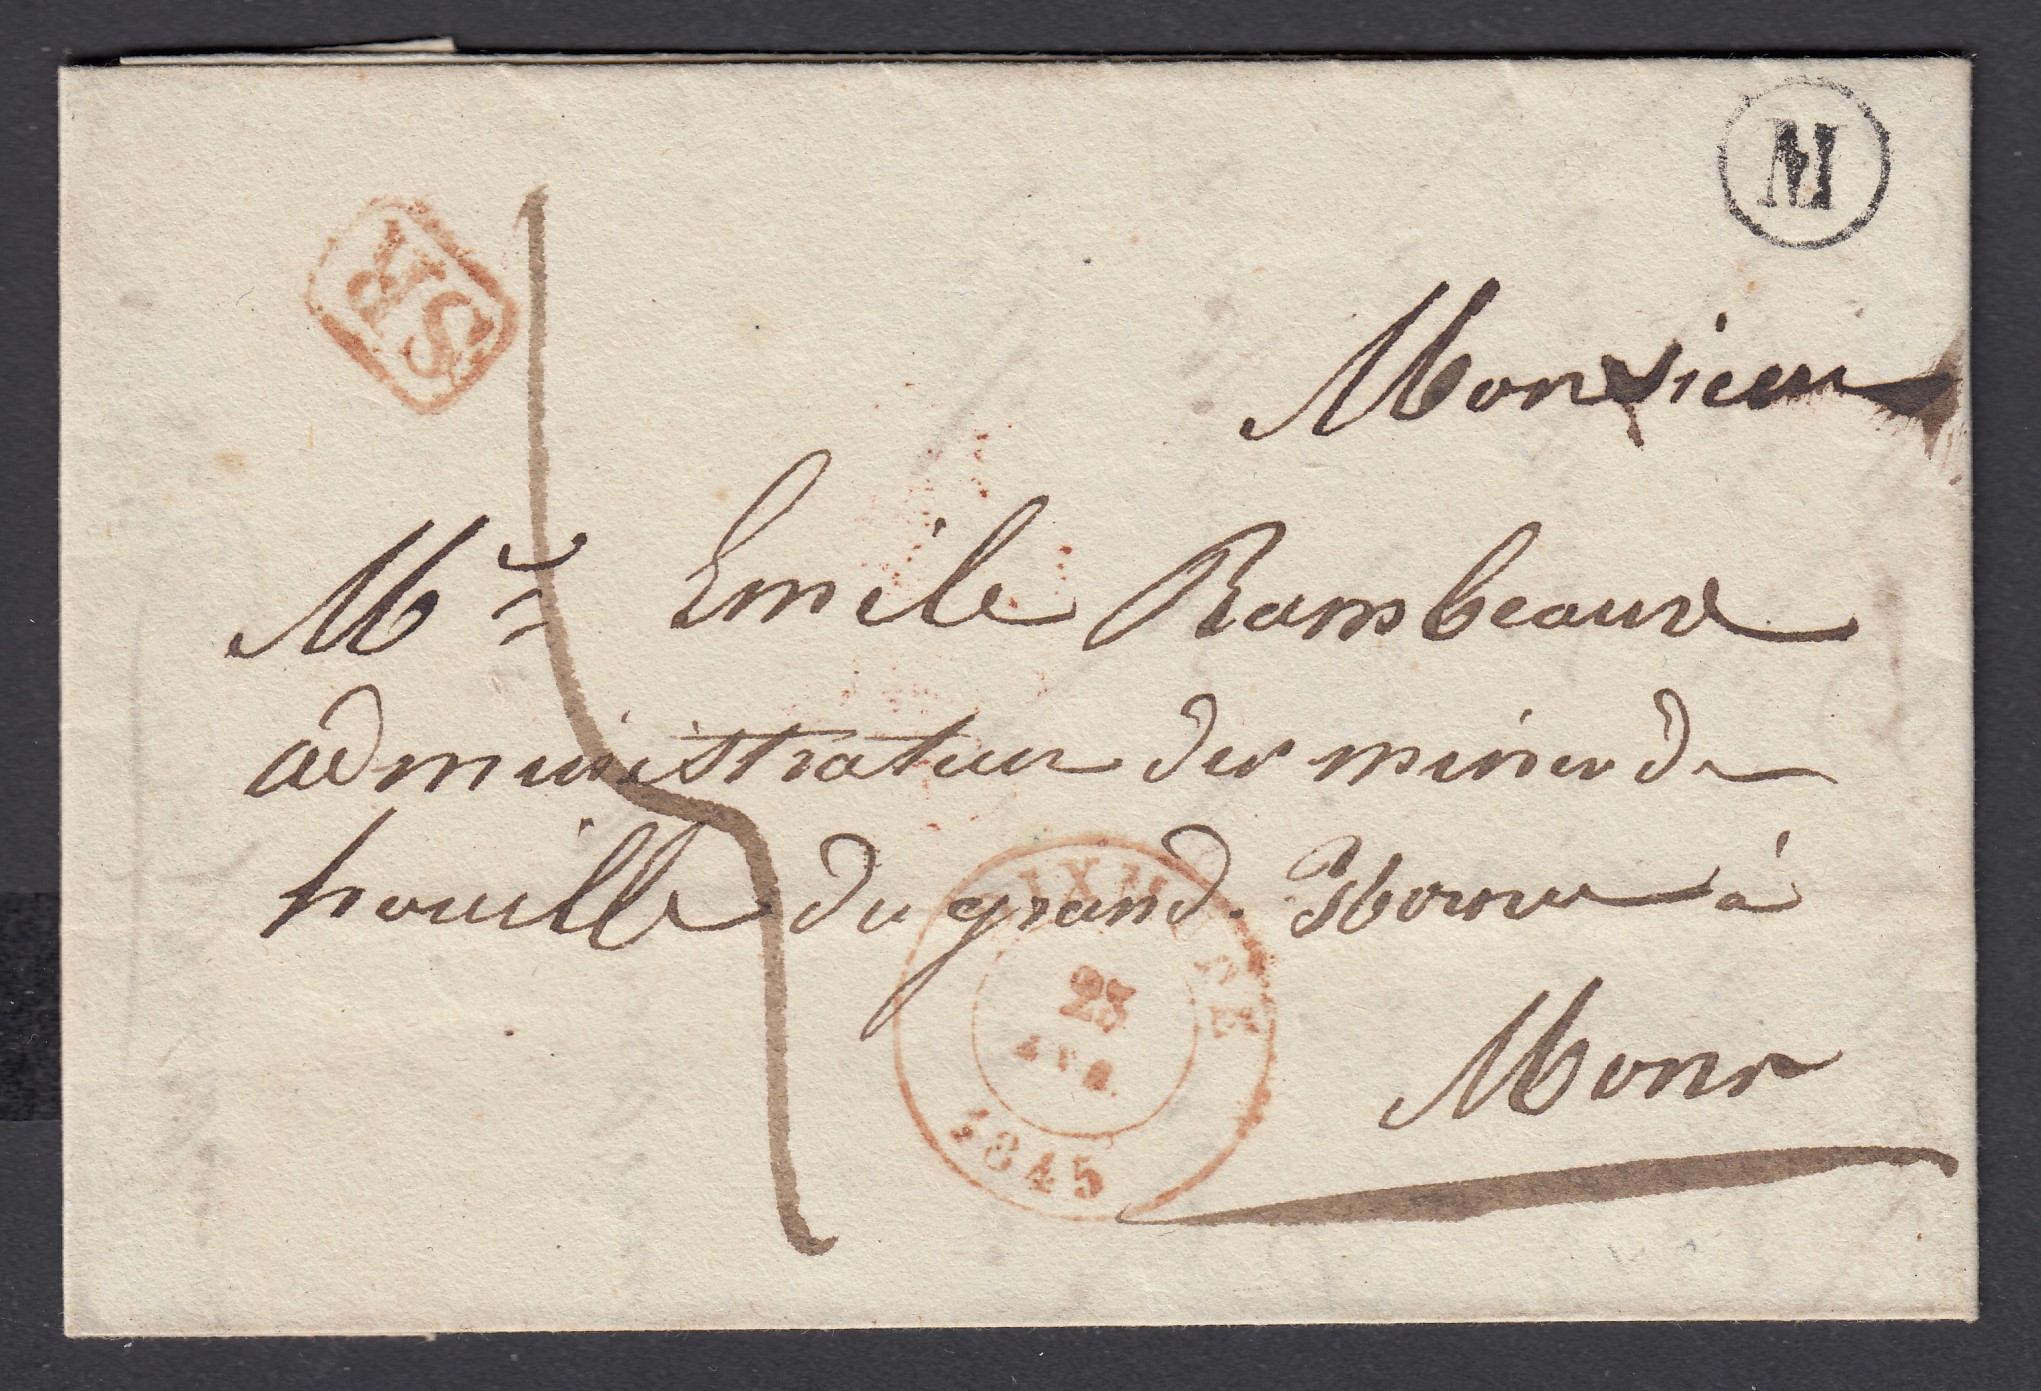 M
SR
Monsieur
Mr Emile Rambeaux
administrateur des mines de
houille du grand Hornu à
Mons
DIXMUDE
23
AVR.
1845